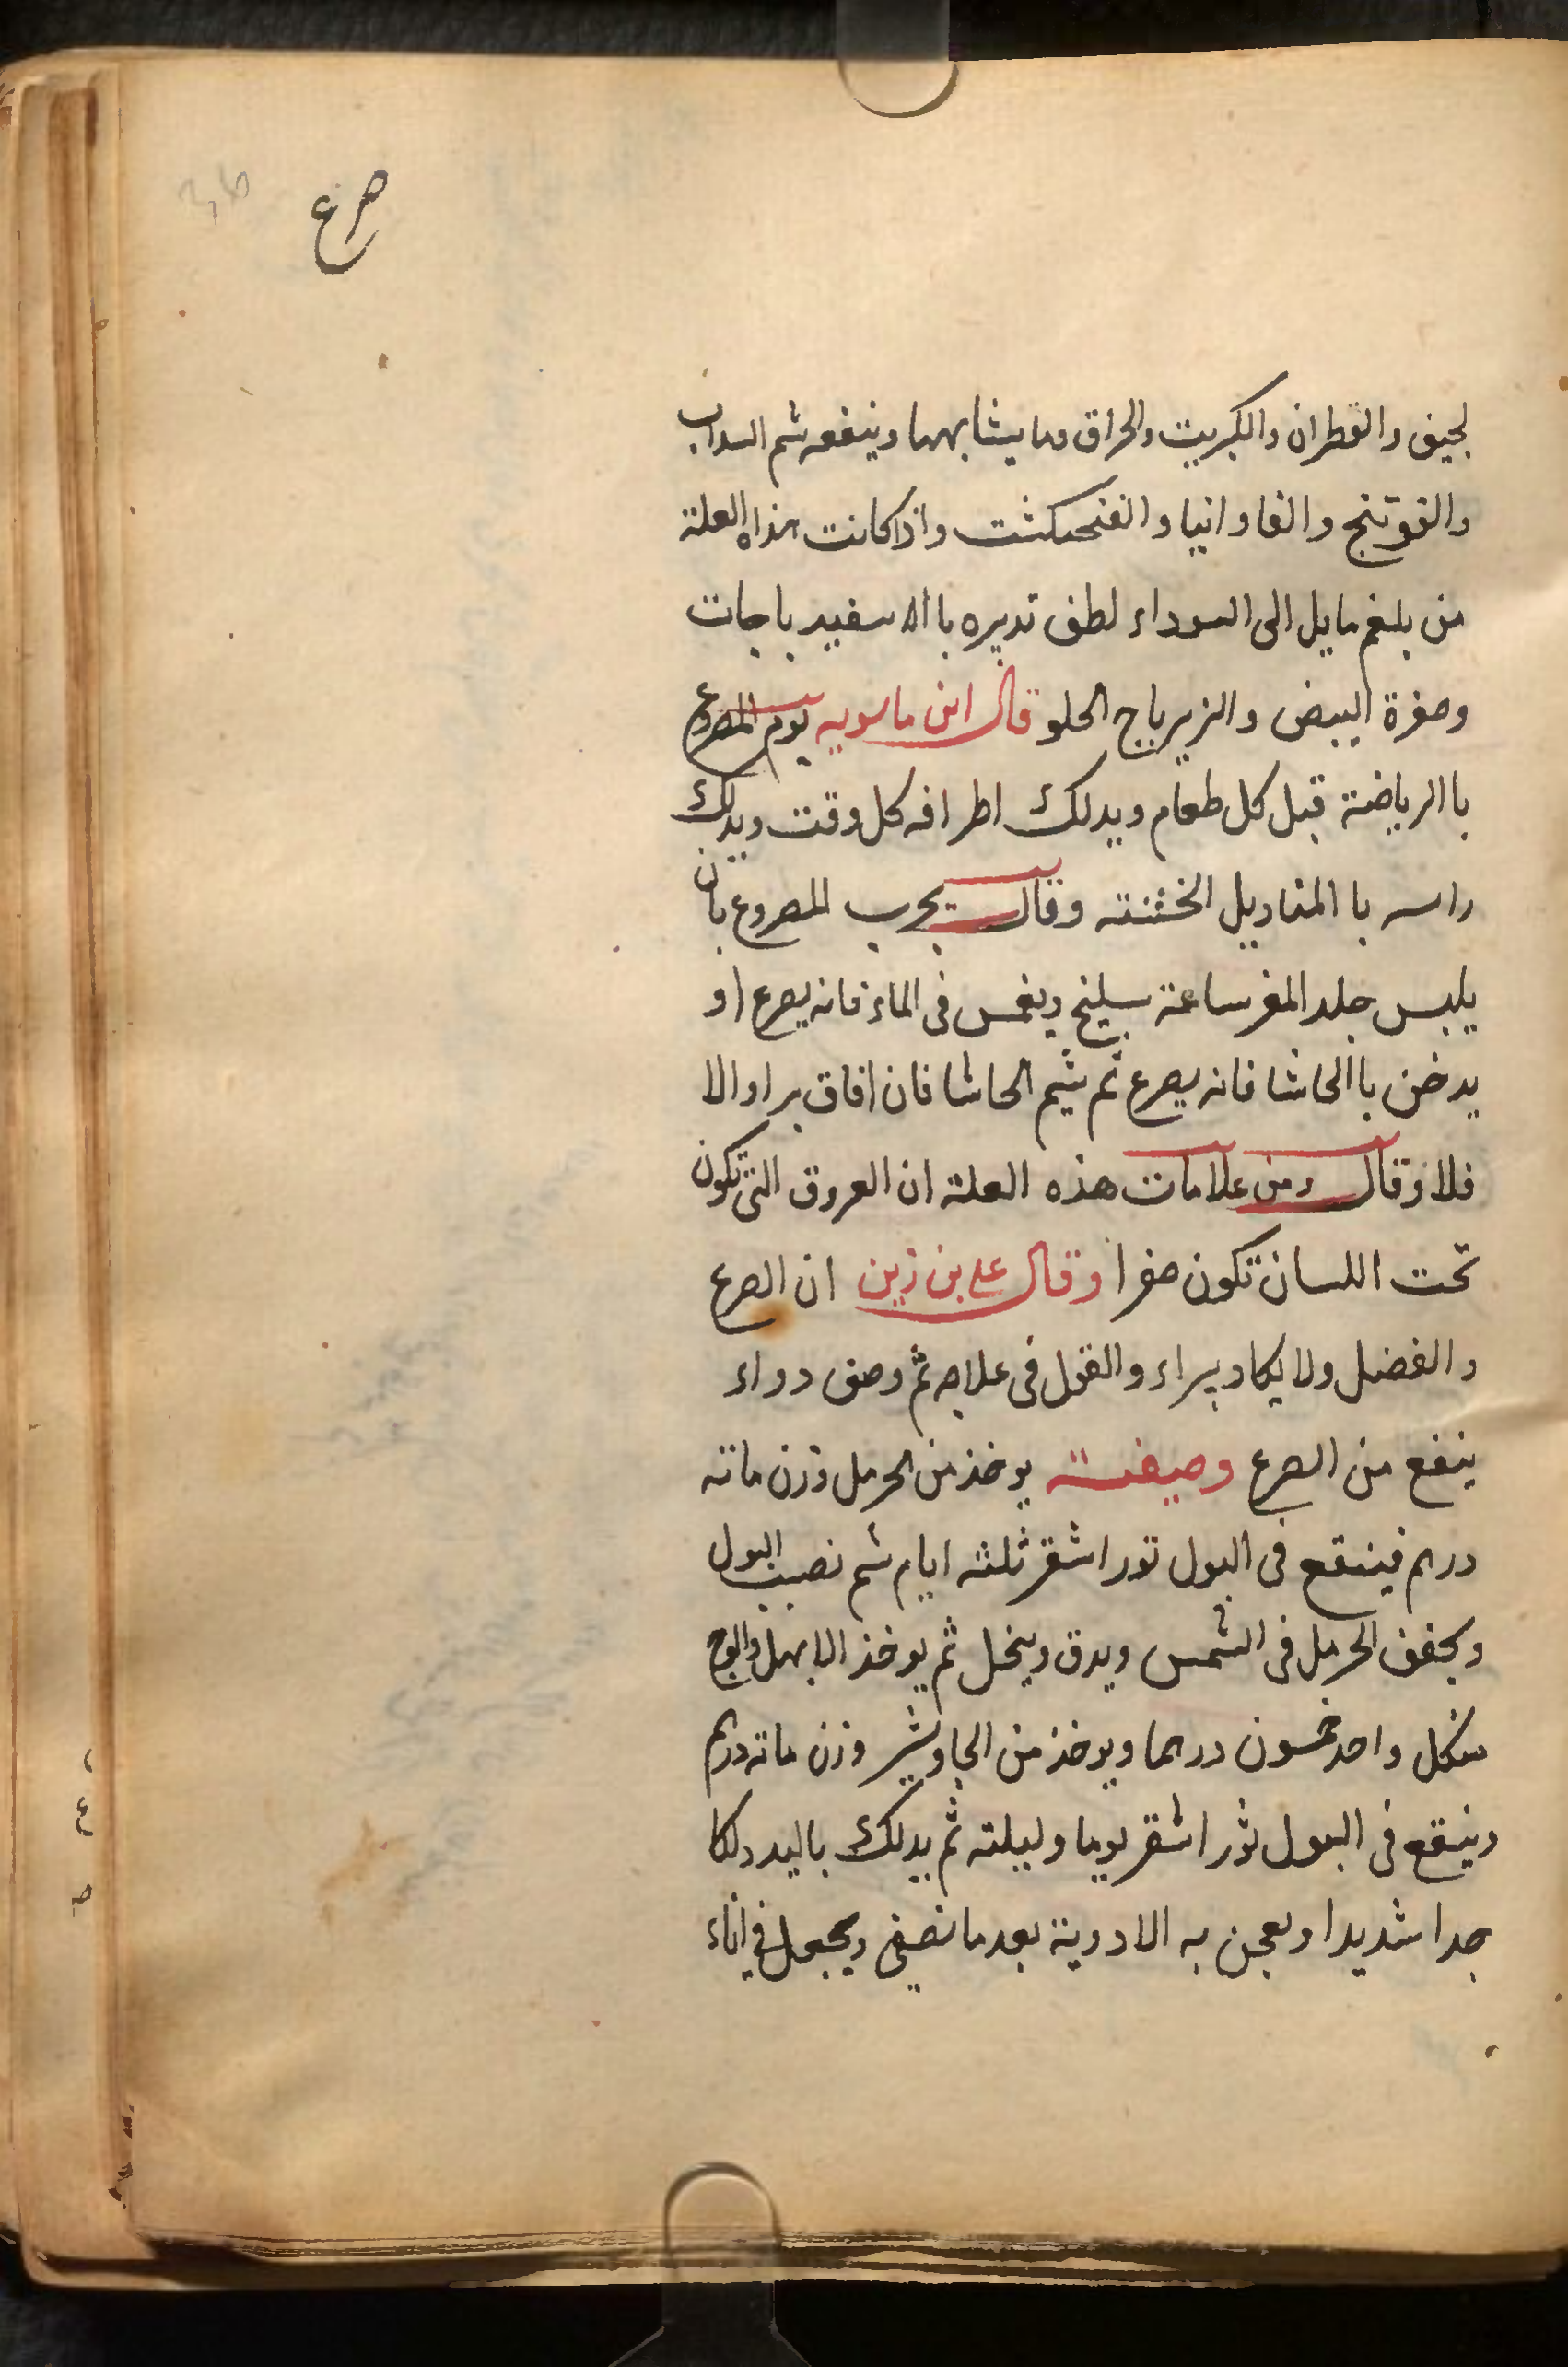 صرع
لجيف والقطران والكبريت والحراق وما يشابهها وينفعه شم السداب
والفوتنج والفاوانيا والفنجنكشت واذا كانت هذاه العلة
من بلغم مايل الى السوداء لطف تدبيره با الاسفيدباجات
وصفرة البيض والزيرباج الحلو قال ابن ماسويه يومر المصروع
با الرياضة قبل كل طعام ويدلك اطرافه كل وقت ويدلك
راسه با المناديل الخشنته وقال يجرب للمصروع بان
يلبس جلد المعز ساعة سيلنج ويغمس فى الماء فانه يصرع او
يدخن با الحاشا فانه يصرع ثم يشم الحاشا فان افاق برا والا
فلا وقال ومن علامات هذه العلة ان العروق التى تكون
تحت اللسان تكون صفرا وقال على بن زين ان الصرع
والفضل ولا يكاد يبراء والقول فى علاجه ثم وصف دواء
ينفع من الصرع وصيفته يوخذ من الحرمل وزن ماته
درهم فينقع فى البول تور اشقر ثلثه ايام ثم نصب البول
ويجفف الحرمل فى الشمس ويدق وينخل ثم يوخذ الابهل والوج
منكل واحد خمسون درهما ويوخذ من الجاوشير وزن ماته درهم
وينقع فى البول ثور اشقر يوما وليلته ثم يدلك باليد دلكا
جدا شديدا ويعجن به الادوية بعد ما نصفى ويجعل فى اناء